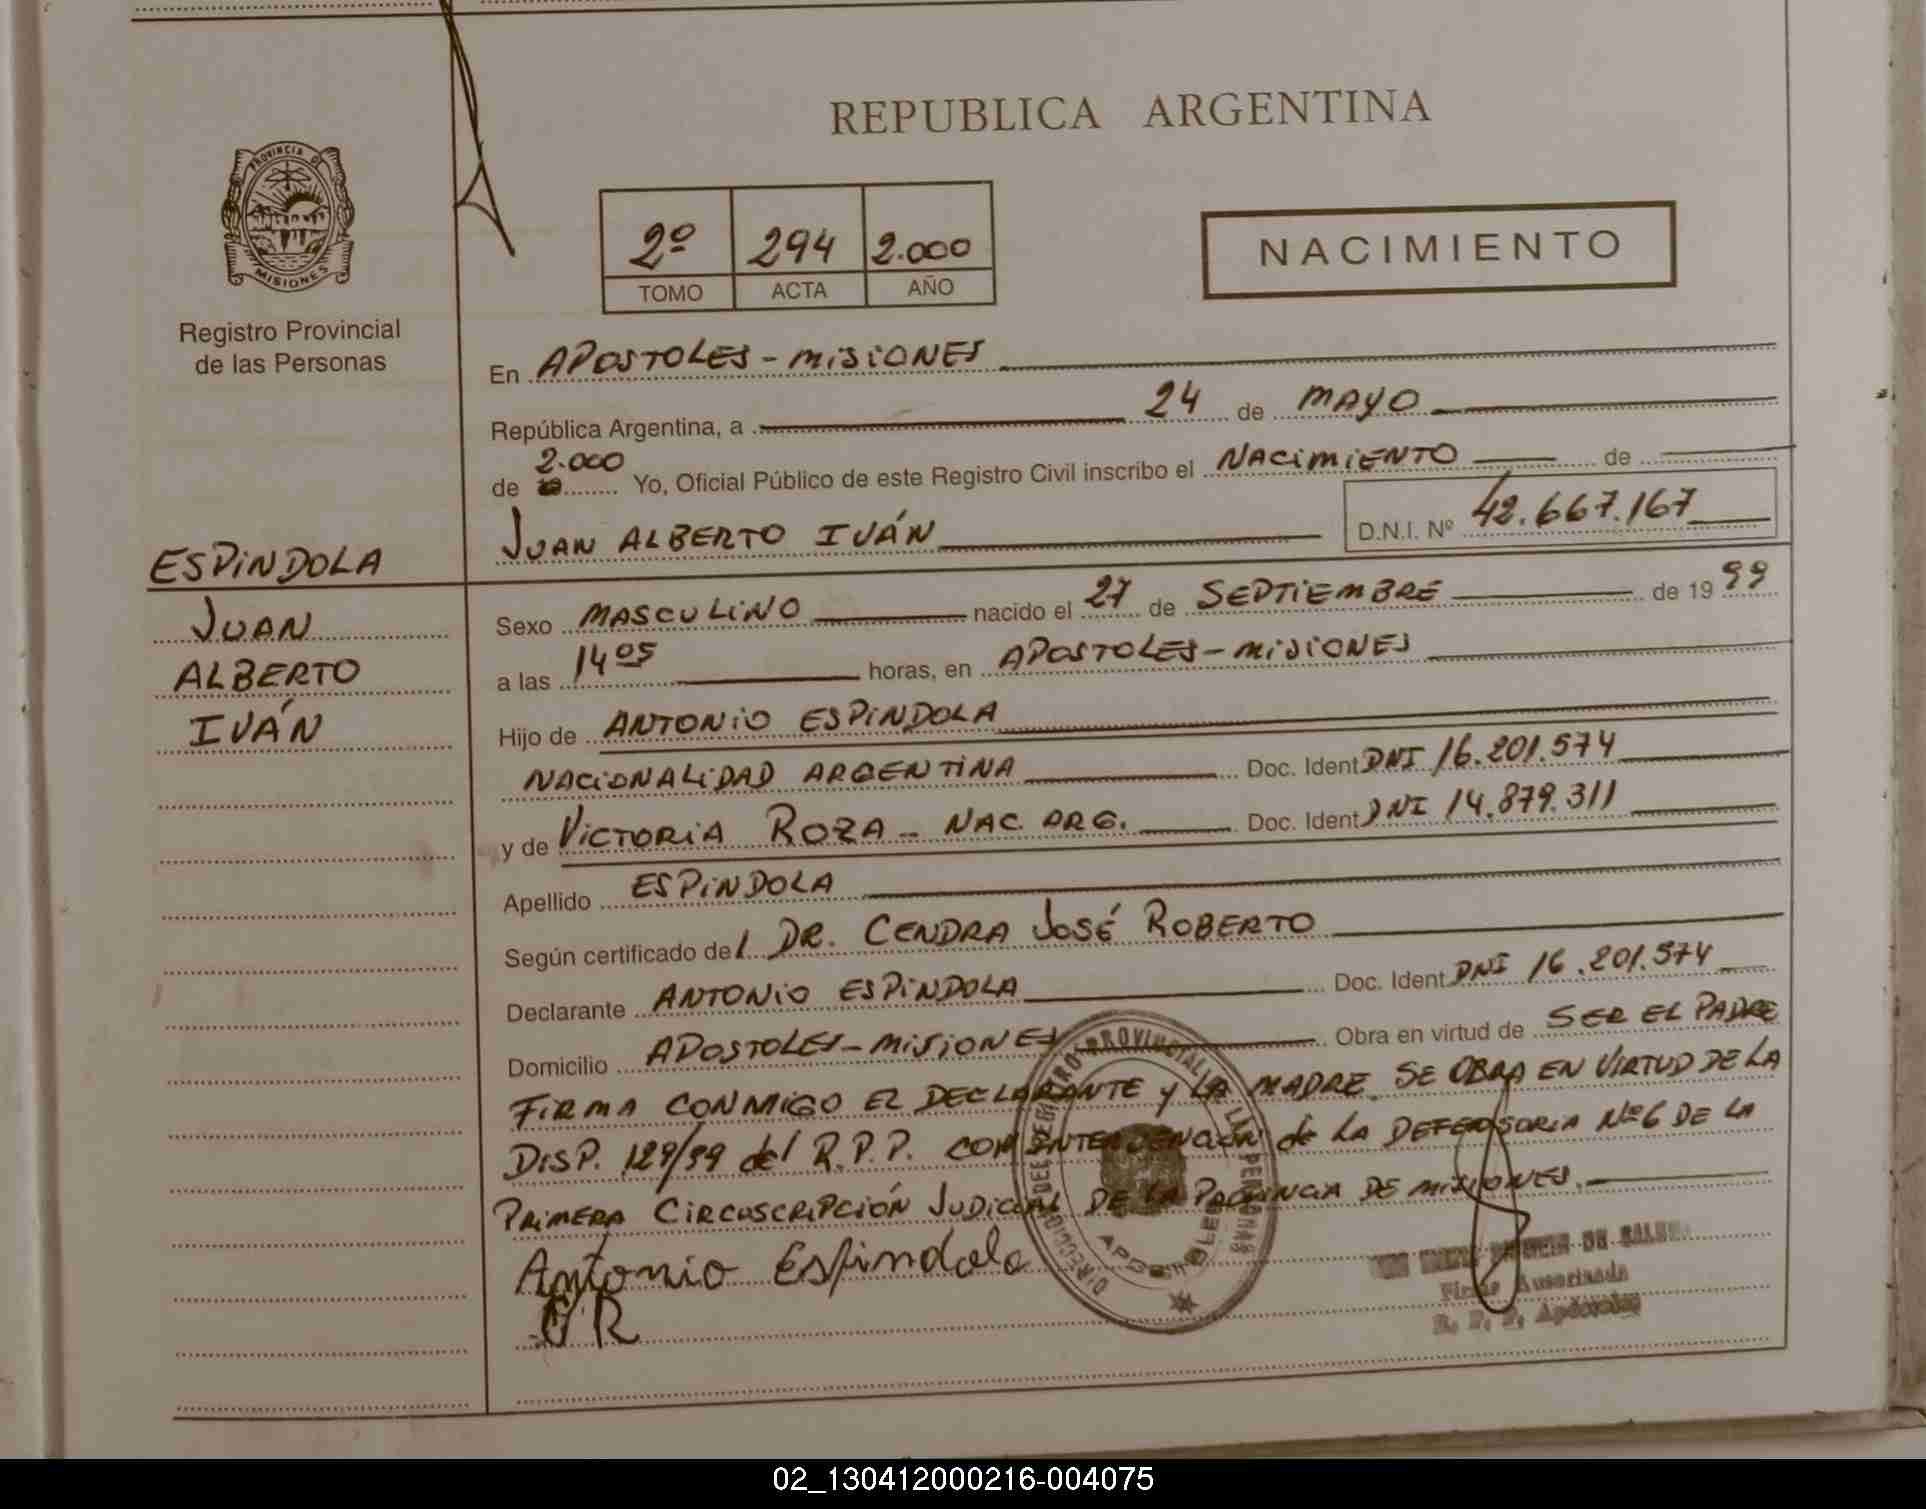 REPUBLICA ARGENTINA
PROVINCIA DE
MISIONES
Registro Provincial
de las Personas
2º 294 2.000
TOMO ACTA AÑO
NACIMIENTO
En APOSTOLES - MISIONES
República Argentina, a 24 de MAYO
de 2.000 Yo, Oficial Público de este Registro Civil inscribo el NACIMIENTO de
JUAN ALBERTO IVÁN D.N.I. Nº 42.667.167
ESPINDOLA
JUAN
ALBERTO
IVÁN
Sexo MASCULINO nacido el 27 de SEPTIEMBRE de 1999
a las 14 05 horas, en APOSTOLES - MISIONES
Hijo de ANTONIO ESPINDOLA
NACIONALIDAD ARGENTINA Doc. Ident DNI 16.201.574
y de VICTORIA ROZA - NAC ARG. Doc. Ident DNI 14.879.311
Apellido ESPINDOLA
Según certificado del DR. CENDRA JOSÉ ROBERTO
Declarante ANTONIO ESPINDOLA Doc. Ident DNI 16.201.574
Domicilio APOSTOLES - MISIONES Obra en virtud de SER EL PADRE
FIRMA CONMIGO EL DECLARANTE y LA MADRE. SE OBRA EN VIRTUD DE LA
DISP. 129/99 del R.P.P. CON INTERVENCIÓN de LA DEFENSORIA Nº 6 DE LA
PRIMERA CIRCUSCRIPCIÓN JUDICIAL DE LA PROVINCIA DE MISIONES.
Antonio Espindola
VR
Firma Autorizada
R. P. P. Apóstoles
02_130412000216-004075